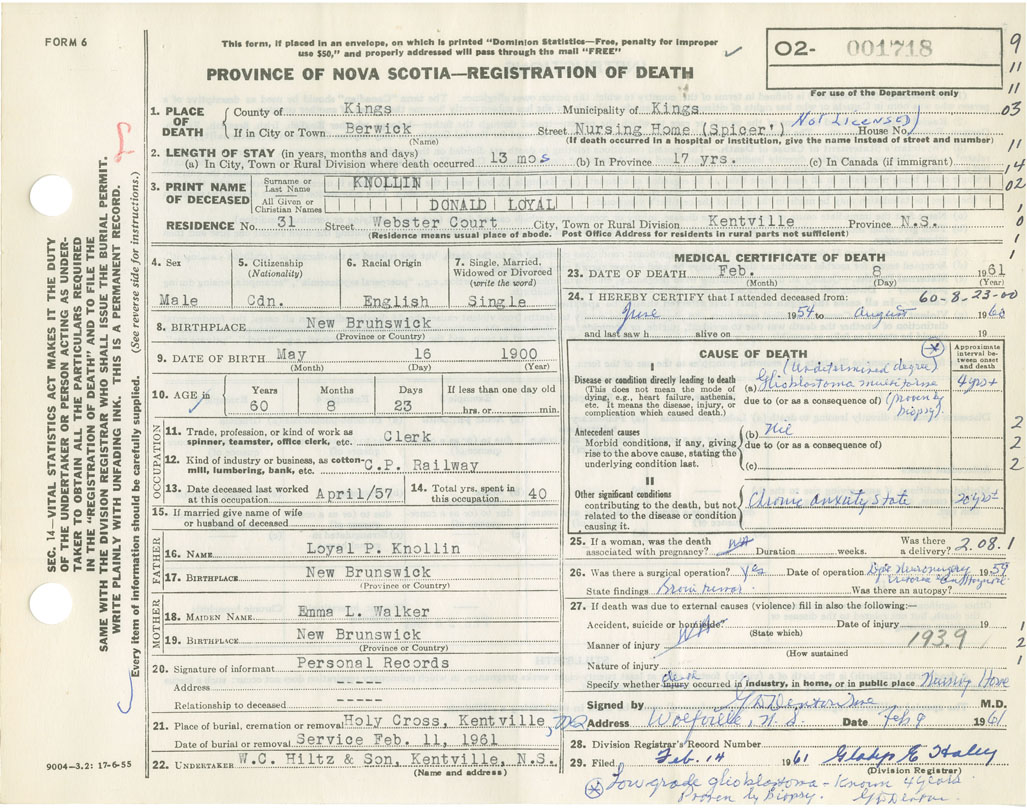 FORM 6
This form, if placed in an envelope, on which is printed "Dominion Statistics—Free, penalty for improper
use $50," and properly addressed will pass through the mail "FREE"
O2- 001718
For use of the Department only
PROVINCE OF NOVA SCOTIA—REGISTRATION OF DEATH
9
11
11
03
11
14
02
1
0
1
1
1. PLACE OF DEATH
County of Kings Municipality of Kings
If in City or Town Berwick Street Nursing Home (Spicer') Not Licensed) House No.
(Name) (If death occurred in a hospital or institution, give the name instead of street and number)
2. LENGTH OF STAY (in years, months and days)
(a) In City, Town or Rural Division where death occurred 13 mos (b) In Province 17 yrs. (c) In Canada (if immigrant)
3. PRINT NAME OF DECEASED
Surname or Last Name KNOLLIN
All Given or Christian Names DONALD LOYAL
RESIDENCE No. 31 Street Webster Court City, Town or Rural Division Kentville Province N.S.
(Residence means usual place of abode. Post Office Address for residents in rural parts not sufficient)
SEC. 14—VITAL STATISTICS ACT MAKES IT THE DUTY
OF THE UNDERTAKER OR PERSON ACTING AS UNDER-
TAKER TO OBTAIN ALL THE PARTICULARS REQUIRED
IN THE "REGISTRATION OF DEATH" AND TO FILE THE
SAME WITH THE DIVISION REGISTRAR WHO SHALL ISSUE THE BURIAL PERMIT.
WRITE PLAINLY WITH UNFADING INK. THIS IS A PERMANENT RECORD.
Every item of information should be carefully supplied. (See reverse side for instructions.)
4. Sex
Male
5. Citizenship
(Nationality)
Cdn.
6. Racial Origin
English
7. Single, Married,
Widowed or Divorced
(write the word)
Single
8. BIRTHPLACE New Bruhswick
(Province or Country)
9. DATE OF BIRTH May 16 1900
(Month) (Day) (Year)
10. AGE in
Years Months Days If less than one day old
60 8 23 hrs. or min.
OCCUPATION
11. Trade, profession, or kind of work as
spinner, teamster, office clerk, etc. Clerk
12. Kind of industry or business, as cotton-
mill, lumbering, bank, etc. C.P. Railway
13. Date deceased last worked
at this occupation April/57
14. Total yrs. spent in
this occupation 40
15. If married give name of wife
or husband of deceased
FATHER
16. NAME Loyal P. Knollin
17. BIRTHPLACE New Brunswick
(Province or Country)
MOTHER
18. MAIDEN NAME Emma L. Walker
19. BIRTHPLACE New Brunswick
(Province or Country)
20. Signature of informant Personal Records
Address -----
Relationship to deceased -----
21. Place of burial, cremation or removal Holy Cross, Kentville,
Date of burial or removal Service Feb. 11, 1961
22. UNDERTAKER W.C. Hiltz & Son, Kentville, N.S.
(Name and address)
9004-3.2: 17-6-55
MEDICAL CERTIFICATE OF DEATH
23. DATE OF DEATH Feb. 8 1961
(Month) (Day) (Year)
24. I HEREBY CERTIFY that I attended deceased from: 60-8-23-00
June 1954 to August 1960
and last saw h alive on 19
CAUSE OF DEATH
Approximate interval between onset and death
I
Disease or condition directly leading to death
(This does not mean the mode of
dying, e.g., heart failure, asthenia,
etc. It means the disease, injury, or
complication which caused death.)
(Undetermined degree)
(a) Glioblastoma multiforme 4 yrs+
due to (or as a consequence of) (proven by biopsy)
Antecedent causes
Morbid conditions, if any, giving
rise to the above cause, stating the
underlying condition last.
(b) Nil
due to (or as a consequence of)
(c)
2
2
2
II
Other significant conditions
contributing to the death, but not
related to the disease or condition
causing it.
Chronic anxiety state 20 yrs+
25. If a woman, was the death
associated with pregnancy? Duration weeks. Was there
a delivery? 2.08.1
26. Was there a surgical operation? yes Date of operation 1959
State findings Brain tumor Was there an autopsy?
27. If death was due to external causes (violence) fill in also the following:—
Accident, suicide or homicide? Date of injury 19
(State which)
Manner of injury 193.9
(How sustained)
Nature of injury
Specify whether injury death occurred in industry, in home, or in public place Nursing Home
1
2
1
Signed by M.D.
Address Wolfville, N.S. Date Feb 9 1961
28. Division Registrar's Record Number
29. Filed Feb. 14 1961 Gladys E. Haley
(Division Registrar)
Low grade glioblastoma - Known 4 years
Proven by Biopsy.